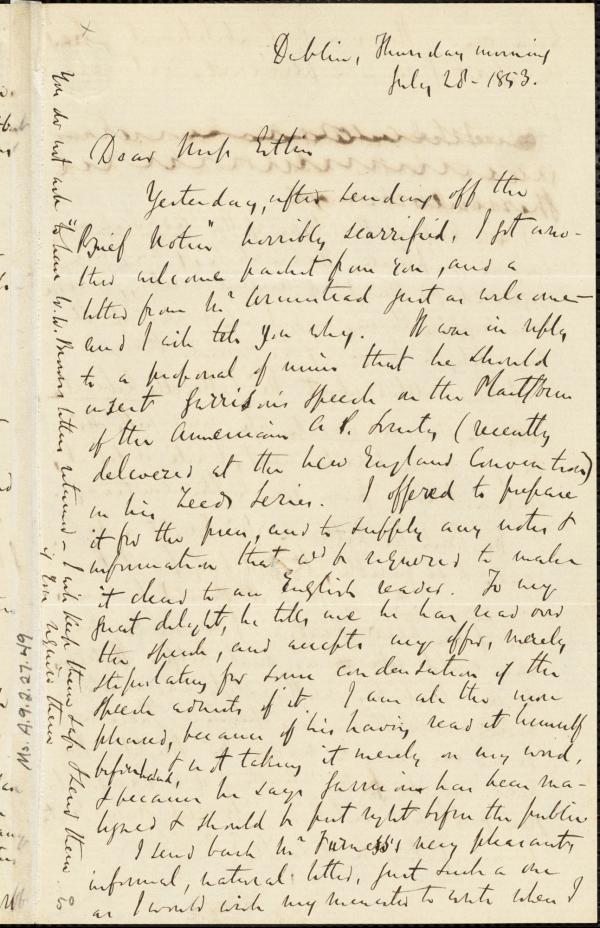 Dublin, Thursday morning
July 28 - 1853.
Dear Miss Estlin
Yesterday, after sending off the
"Brief Notice" horribly scarrified, I got ano-
ther welcome packet from you, and a
letter from Mr Armistead just as welcome -
and I will tell you why. It was in reply
to a proposal of mine that he should
insert Garrison's speech on the Platform
of the American A. S. Society (recently
delivered at the New England Convention)
in his Leeds Series. I offered to prepare
it for the press, and to supply any notes &
information that wd be required to make
it clear to an English reader. To my
great delight, he tells me he has read over
the speech, and accepts my offer, merely
stipulating for some condensation if the
speech admits of it. I am all the more
pleased, because of his having read it himself
beforehand, & not taking it merely on my word,
& because he says Garrison has been ma-
ligned & should be put right before the public
I send back Mr Furness's very pleasant,
informal, natural letter, just such a one
as I would wish my intimates to write when I
You do not ask "to have W. W. Brown's letters returned - I will keep them safe & send them
if you require them
Ms. A.9.2.27.49